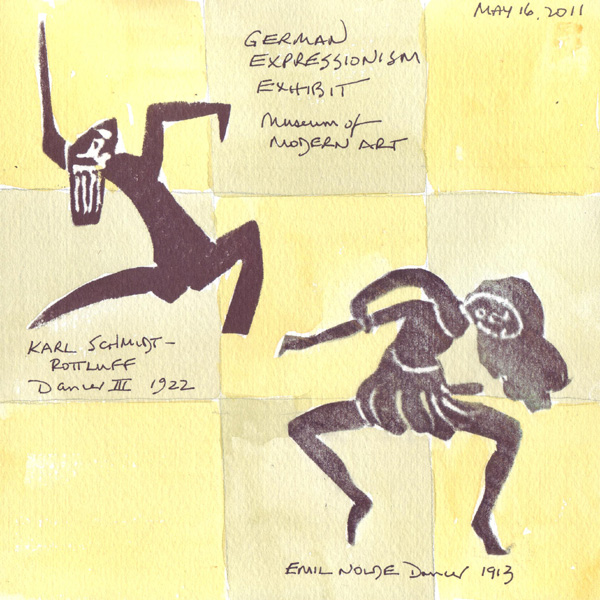 MAY 16, 2011
GERMAN
EXPRESSIONISM
EXHIBIT
Museum of
MODERN ART
KARL SCHMIDT-
ROTTLUFF
Dancer III 1922
EMIL NOLDE Dancer 1913